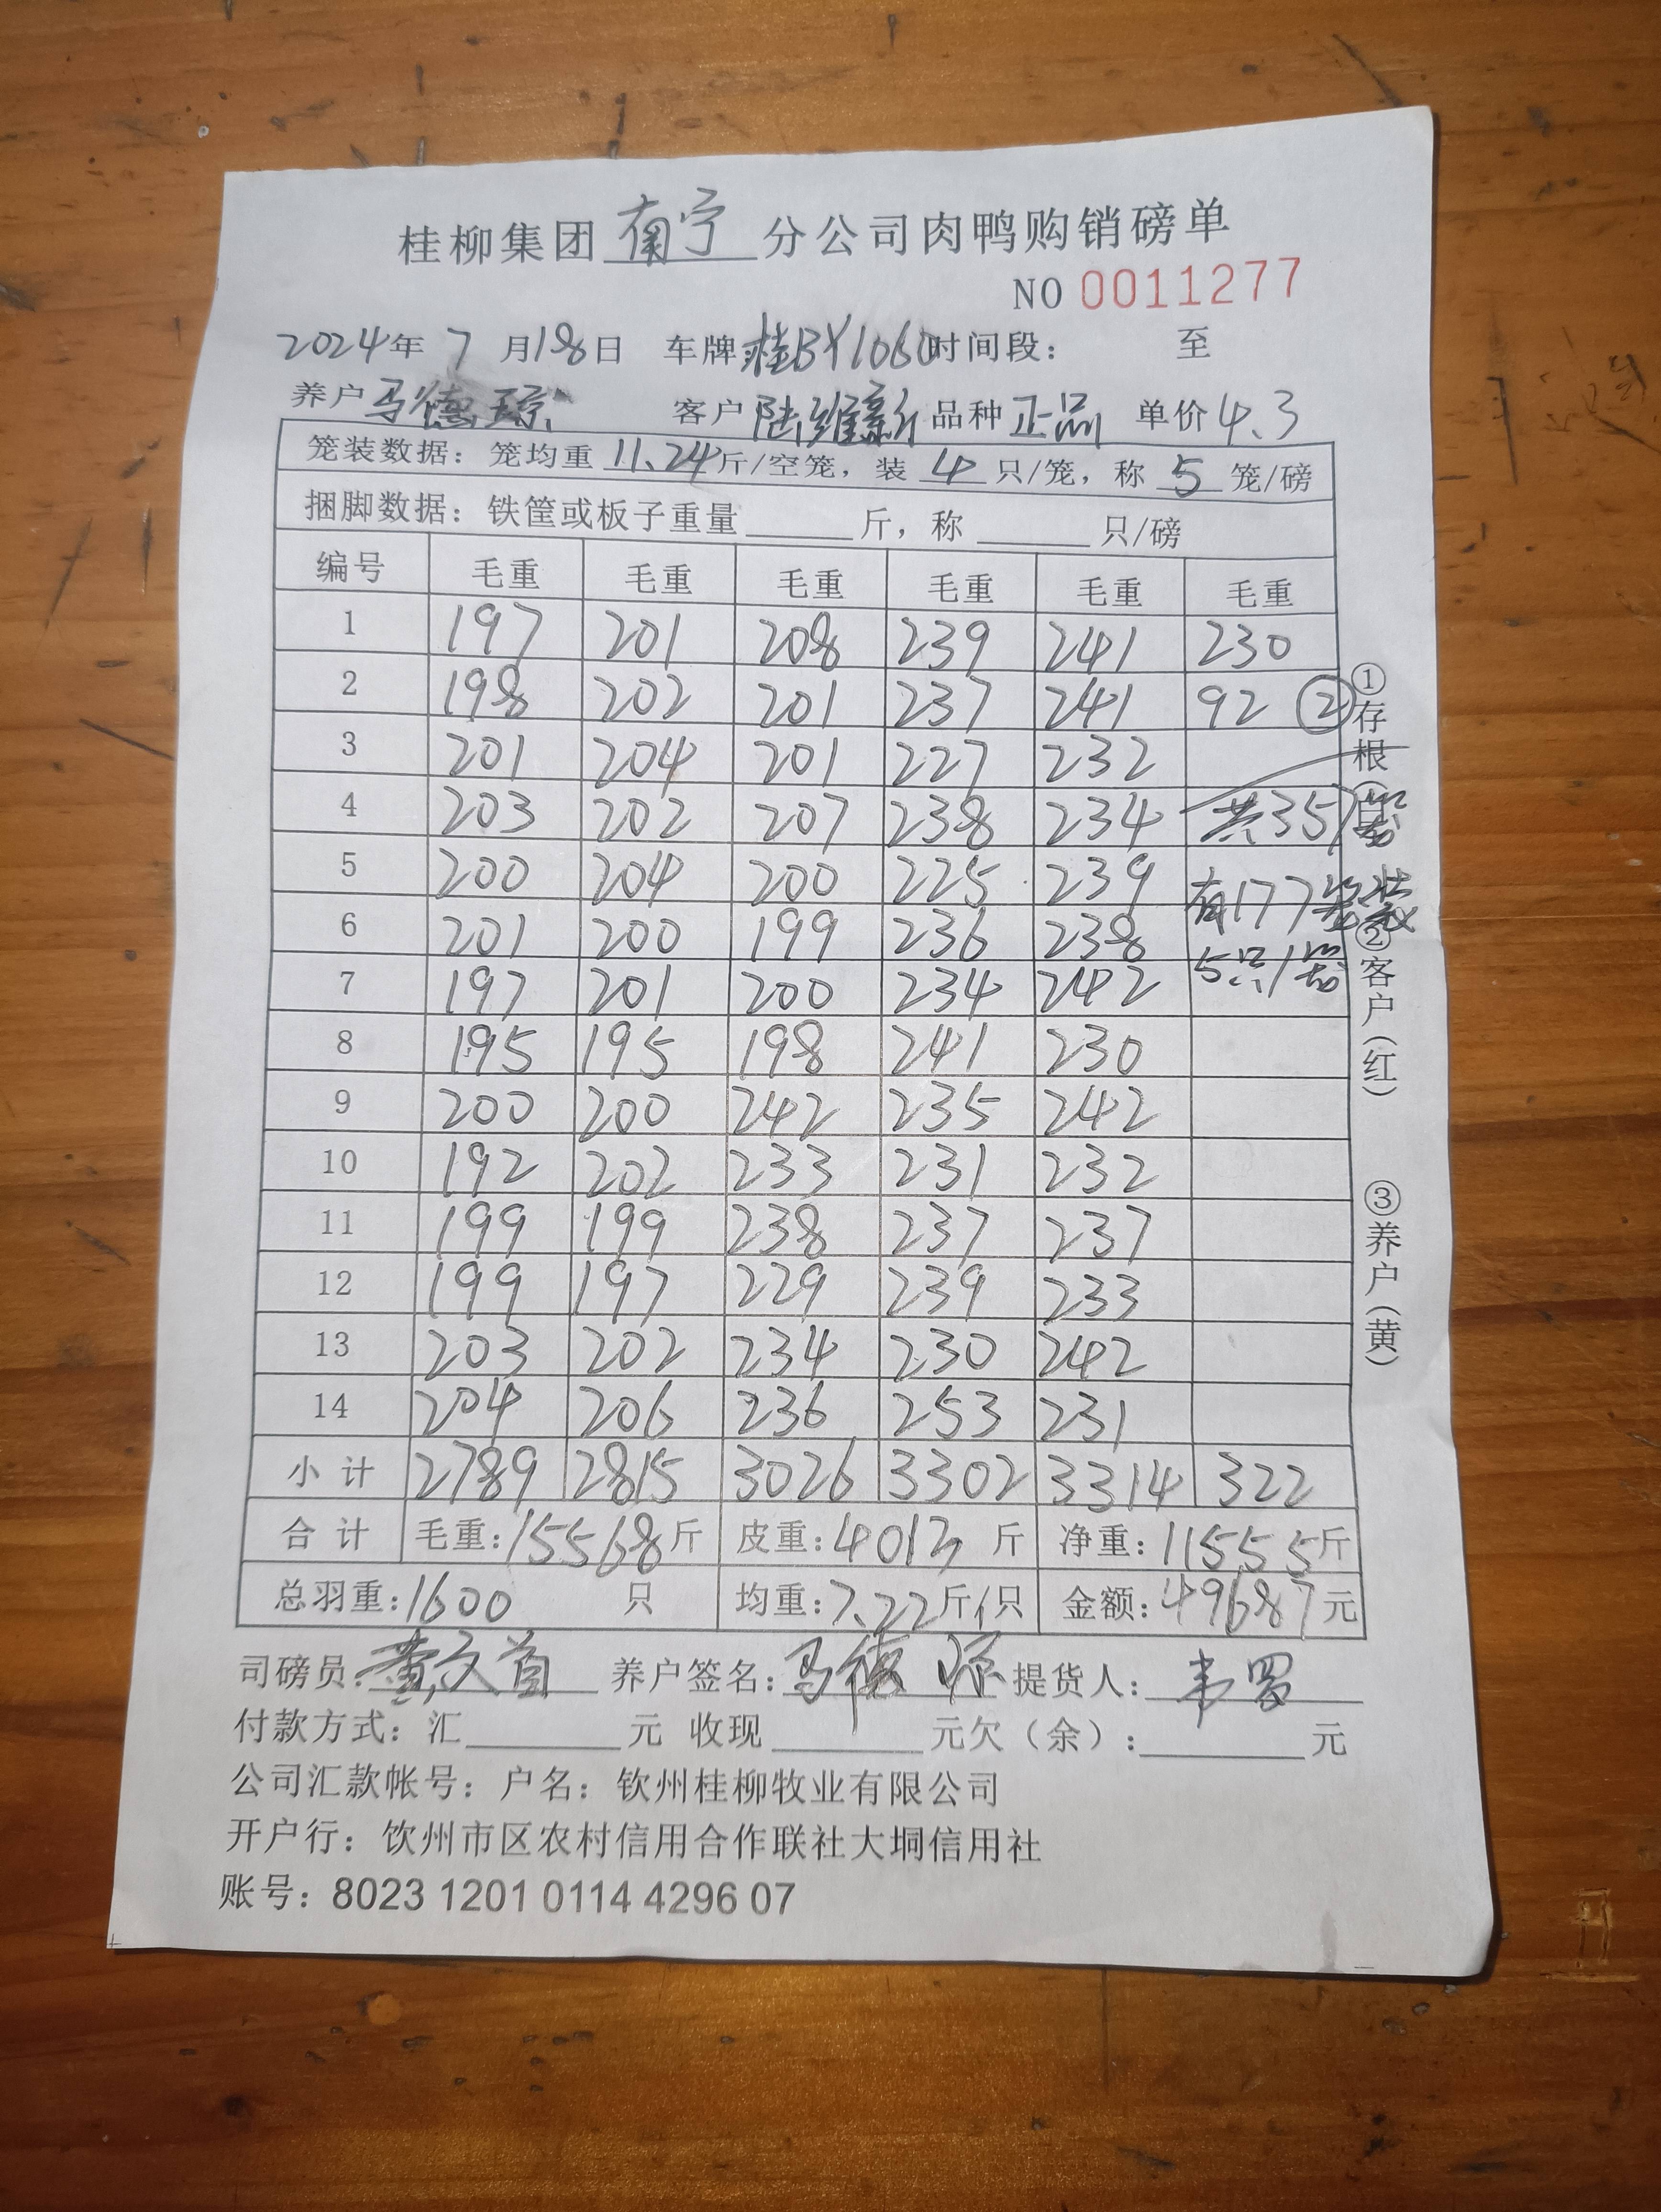 桂柳集团南宁分公司肉鸭购销磅单
NO 0011277
2024年 7 月18日 车牌桂BY1060时间段： 至
养户马德琼 客户陆维新 品种正品 单价4.3
笼装数据：笼均重 11.24斤/空笼，装 4 只/笼，称 5 笼/磅
捆脚数据：铁筐或板子重量______斤，称______只/磅
编号 毛重 毛重 毛重 毛重 毛重 毛重
1 197 201 208 239 241 230
2 198 202 201 237 241 92 ②
3 201 204 201 227 232
4 203 202 207 238 234 共357笼
5 200 204 200 225 239 有177笼装
6 201 200 199 236 238
7 197 201 200 234 242 5只/笼
8 195 195 198 241 230
9 200 200 242 235 242
10 192 202 233 231 232
11 199 199 238 237 237
12 199 197 229 239 233
13 203 202 234 230 242
14 204 206 236 253 231
小计 2789 2815 3026 3302 3314 322
合计 毛重：15568斤 皮重：4013 斤 净重：11555斤
总羽重：1600 只 均重：7.22斤/只 金额：49687元
司磅员：黄文首 养户签名：马德琼 提货人：韦罗
付款方式：汇______元 收现______元欠（余）：______元
公司汇款帐号：户名：钦州桂柳牧业有限公司
开户行：饮州市区农村信用合作联社大垌信用社
账号：8023 1201 0114 4296 07
①存根（白）
②客户（红）
③养户（黄）